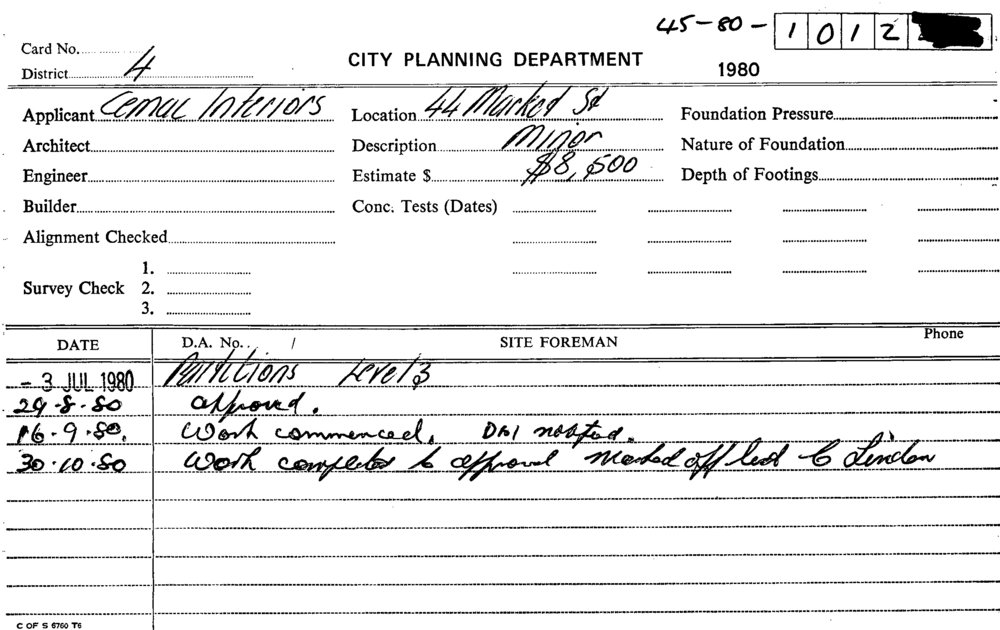 45-80-1012
Card No.
District 4
CITY PLANNING DEPARTMENT
1980
Applicant Cemac Interiors
Location 44 Market St
Foundation Pressure
Architect
Description Minor
Nature of Foundation
Engineer
Estimate $ $8,500
Depth of Footings
Builder
Conc. Tests (Dates)
Alignment Checked
Survey Check
1.
2.
3.
DATE
D.A. No. /
SITE FOREMAN
Phone
- 3 JUL 1980 Partitions Level 3
29-8-80 approved.
16-9-80. Work commenced. notified.
30-10-80 Work completed to approval Marked off C Lindon
C OF S 6760 T6